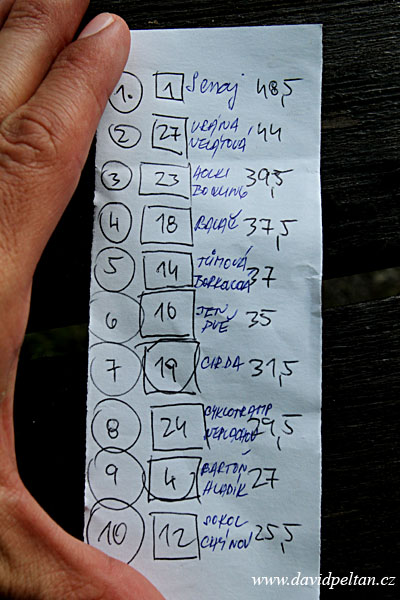 1. 1 Senoj 48,5
2 27 VRÁNA 44
3 23 HOLKI 39,5
BOWLING
4 18 37,5
5 14 TŮMOVÁ 37
6 16 JEN 35
DVĚ
7 19 CIRDA 31,5
8 24 CYKLOTRAMP 29,5
9 4 BARTOŇ 27
HLADÍK
10 12 SOKOL 25,5
CHÝNOV
www.davidpeltan.cz